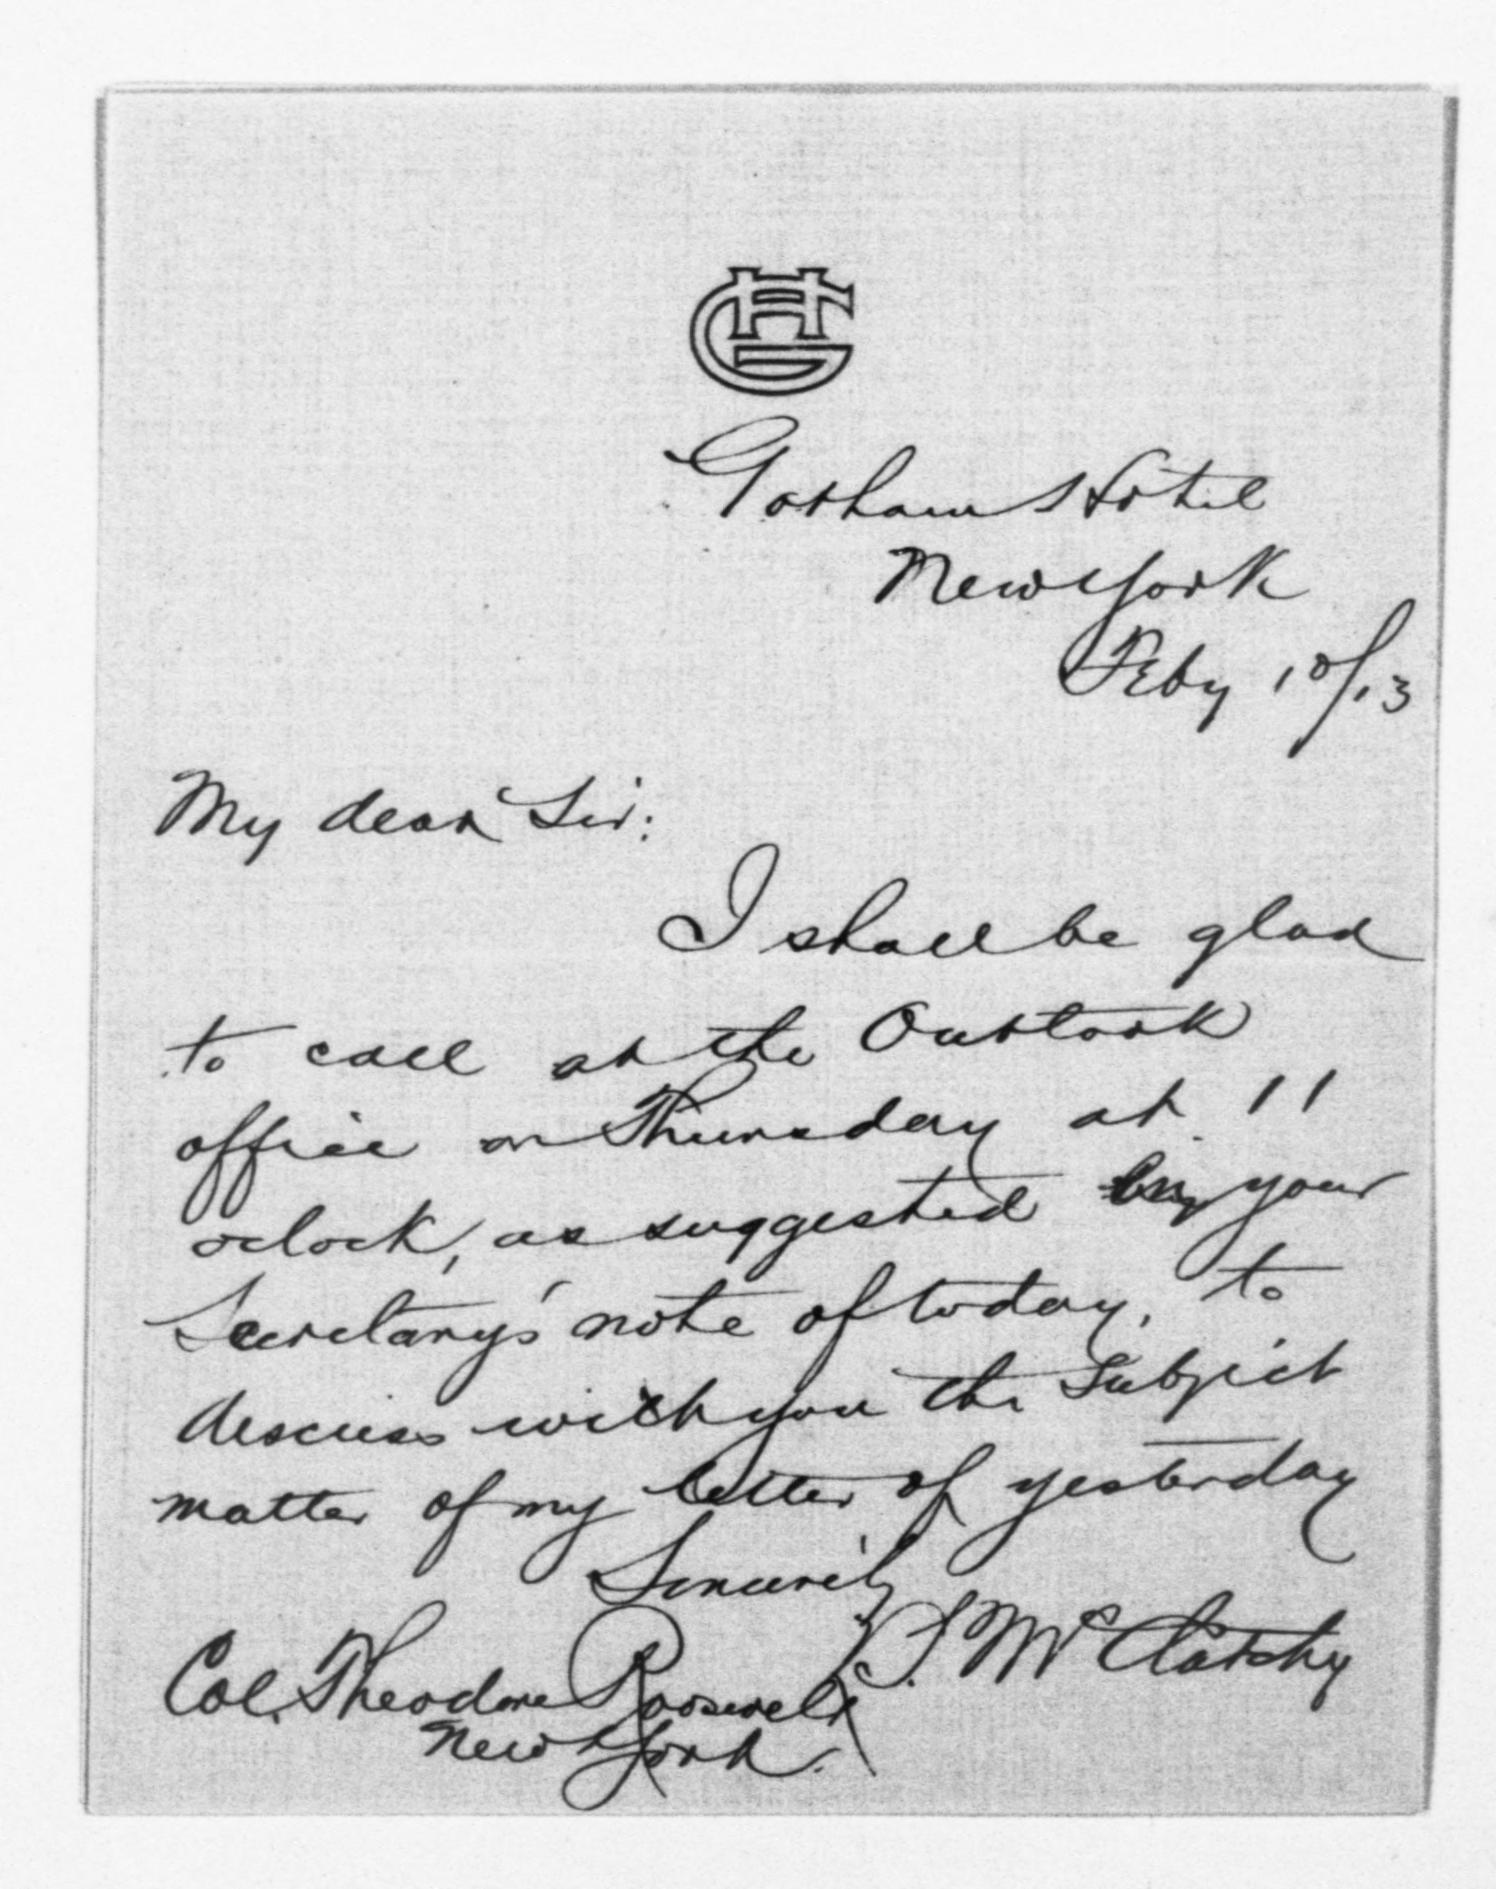 GH
Gorham Hotel
New York
Feby 10/13
My dear Sir:
I shall be glad
to call at the Outlook
office on Thursday at 11
oclock, as suggested by your
Secretary's note of today, to
discuss with you the subject
matter of my letter of yesterday
Sincerely
S. McClatchy
Col. Theodore Roosevelt
New York.